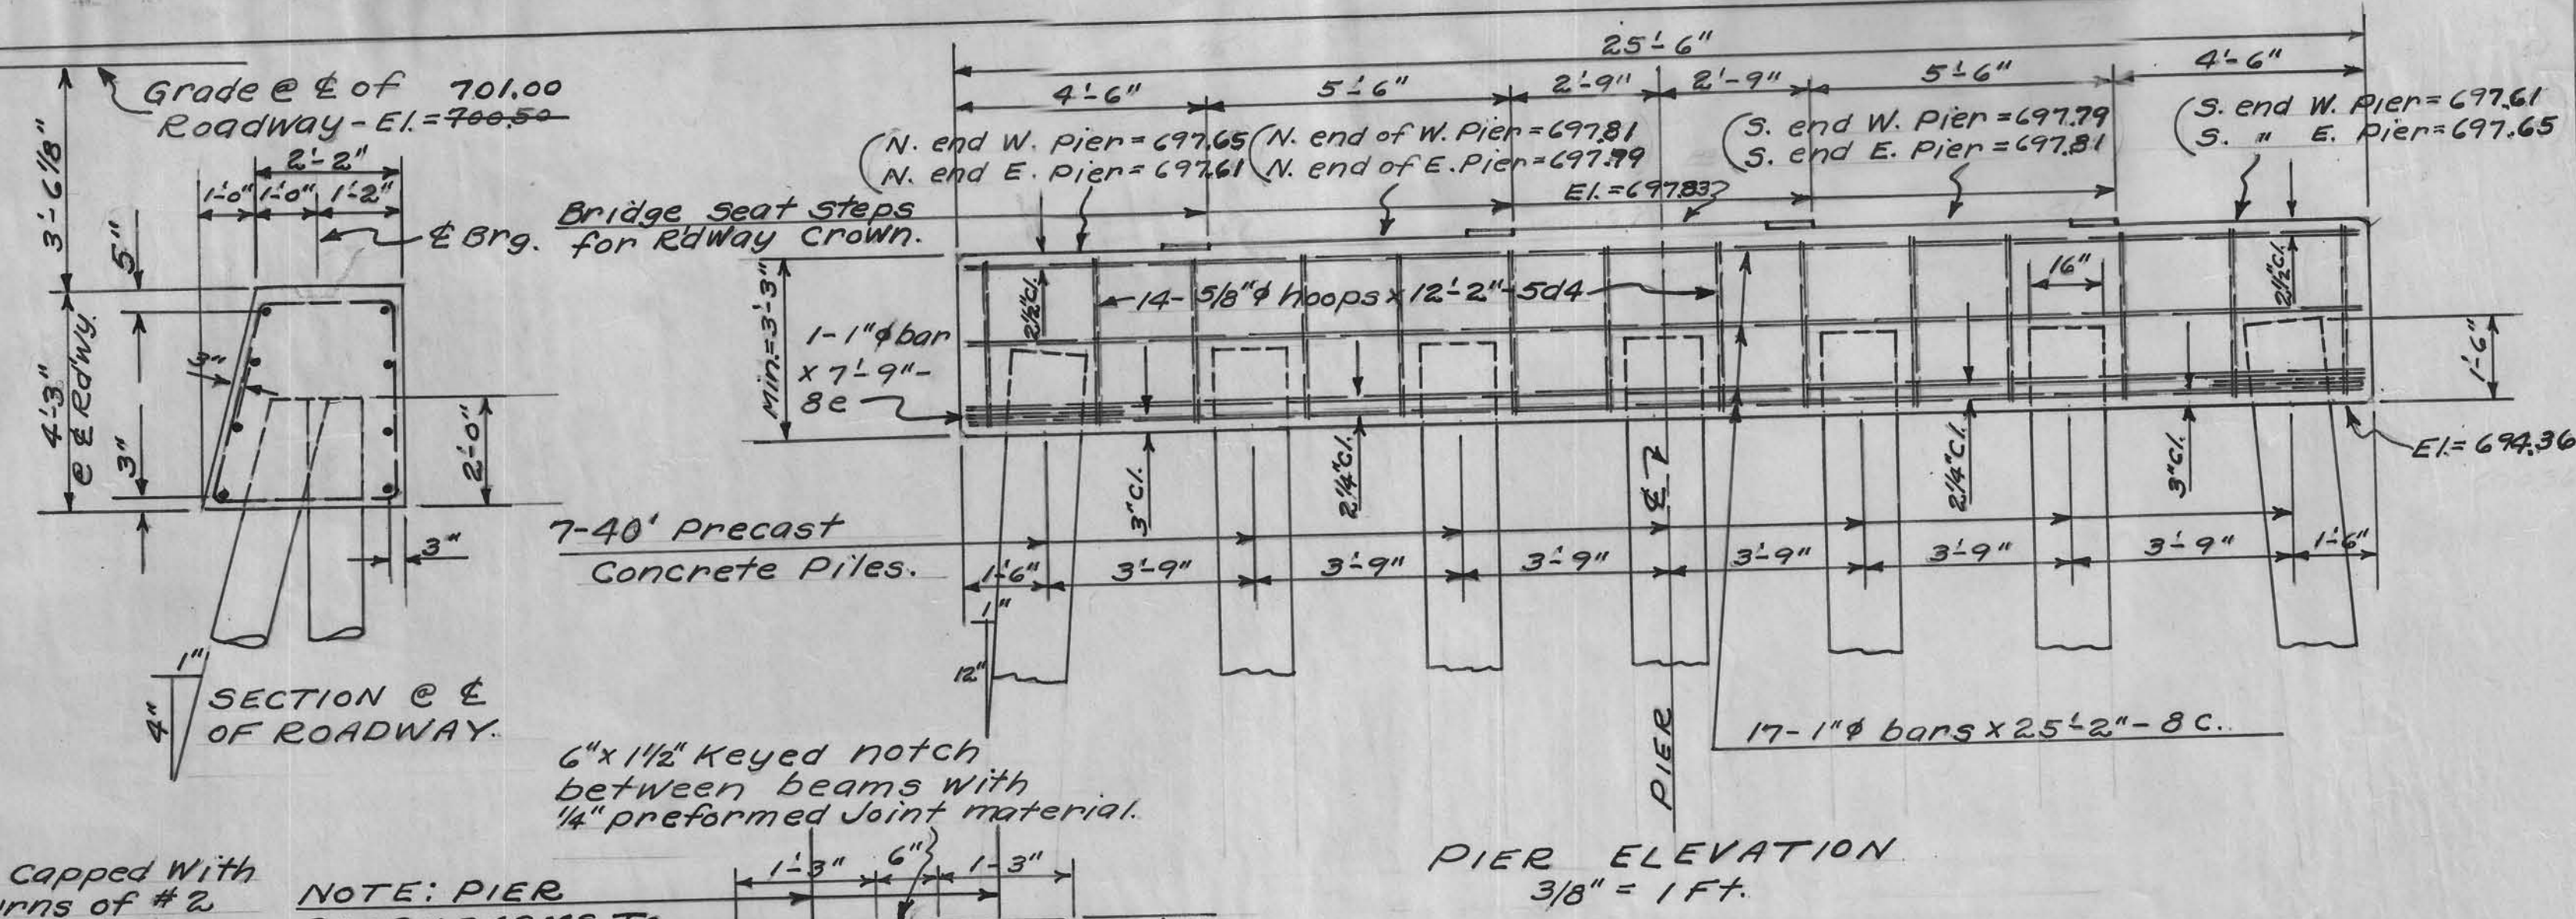 Grade @ ℄ of 701.00
Roadway - El. = 700.50
3'-6 1/8"
2'-2"
1'-0" 1'-0" 1'-2"
℄ Brg.
5"
3"
4'-3"
@ ℄ Rd'wy.
3"
2'-0"
3"
1"
4"
SECTION @ ℄
OF ROADWAY.
25'-6"
4'-6" 5'-6" 2'-9" 2'-9" 5'-6" 4'-6"
N. end W. Pier = 697.65
N. end E. Pier = 697.61
N. end of W. Pier = 697.81
N. end of E. Pier = 697.79
El. = 697.83
S. end W. Pier = 697.79
S. end E. Pier = 697.81
S. end W. Pier = 697.61
S. " E. Pier = 697.65
Bridge Seat Steps
for Rdway Crown.
Min. = 3'-3"
2½" Cl.
14 - 5/8" ϕ hoops x 12'-2" - 5d4
16"
2½" Cl.
1 - 1" ϕ bar
x 7'-9" -
8e
1'-6"
El. = 694.36
3" Cl.
2¼" Cl.
℄
2¼" Cl.
3" Cl.
7-40' Precast
Concrete Piles.
1'-6" 3'-9" 3'-9" 3'-9" 3'-9" 3'-9" 3'-9" 1'-6"
1"
12"
PIER
17 - 1" ϕ bars x 25'-2" - 8c.
6" x 1½" Keyed notch
between beams with
¼" preformed Joint material.
1'-3" 6" 1'-3"
PIER ELEVATION
3/8" = 1 Ft.
Capped With
#2
NOTE: PIER